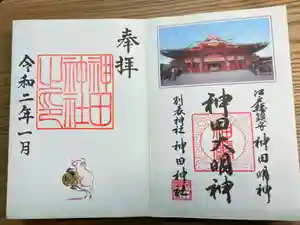 奉拝
神田
神社
令和二年一月
江戸総鎮守 神田明神
神田大明神
別表神社 神田神社